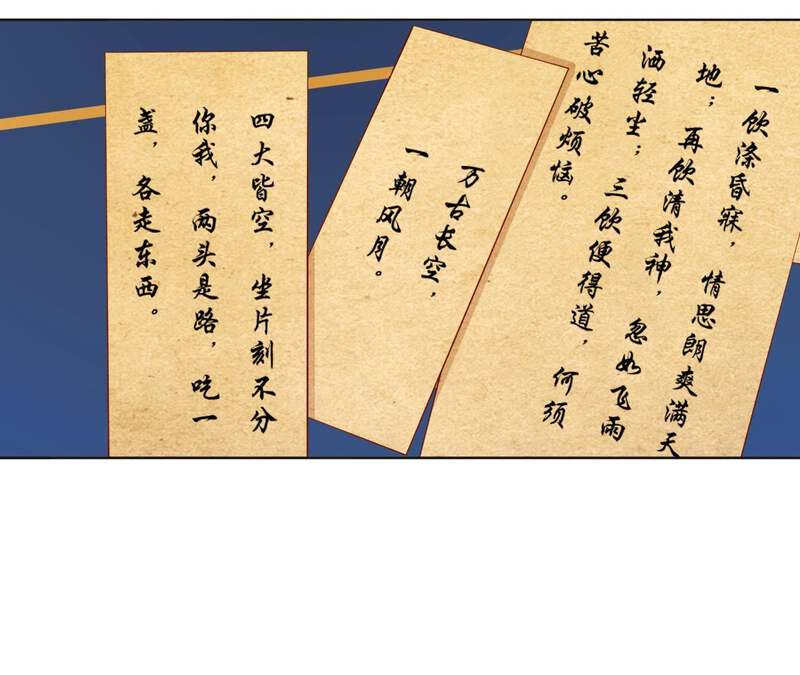 一饮涤昏寐，情思朗爽满天
地；再饮清我神，忽如飞雨
洒轻尘；三饮便得道，何须
苦心破烦恼。
万古长空，
一朝风月。
四大皆空，坐片刻不分
你我，两头是路，吃一
盏，各走东西。